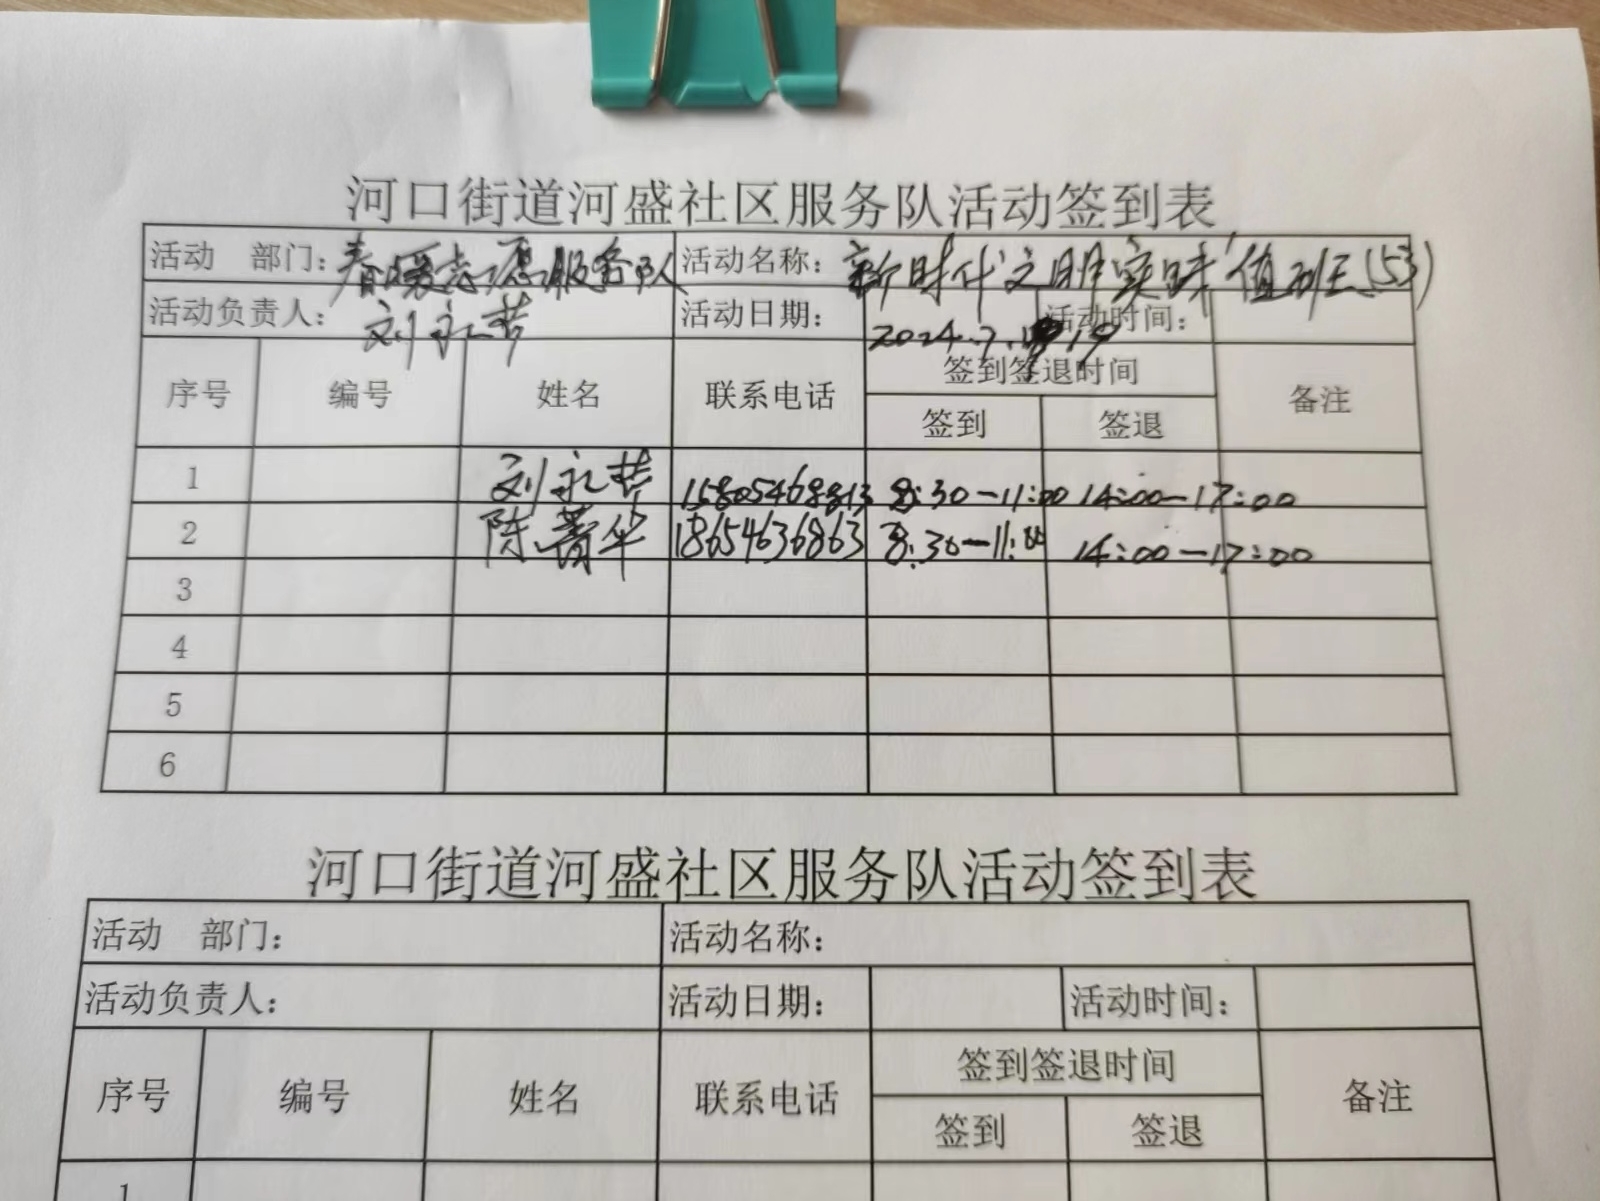 河口街道河盛社区服务队活动签到表
活动 部门：春暖志愿服务队 活动名称：新时代文明实践值班(53)
活动负责人：刘永苦 活动日期：2024.7.19 活动时间：
序号 编号 姓名 联系电话 签到签退时间 备注
签到 签退
1 刘永苦 15805468813 8:30—11:00 14:00—17:00
2 陈菁华 18654636863 8:30—11:00 14:00—17:00
3
4
5
6
河口街道河盛社区服务队活动签到表
活动 部门： 活动名称：
活动负责人： 活动日期： 活动时间：
序号 编号 姓名 联系电话 签到签退时间 备注
签到 签退
1